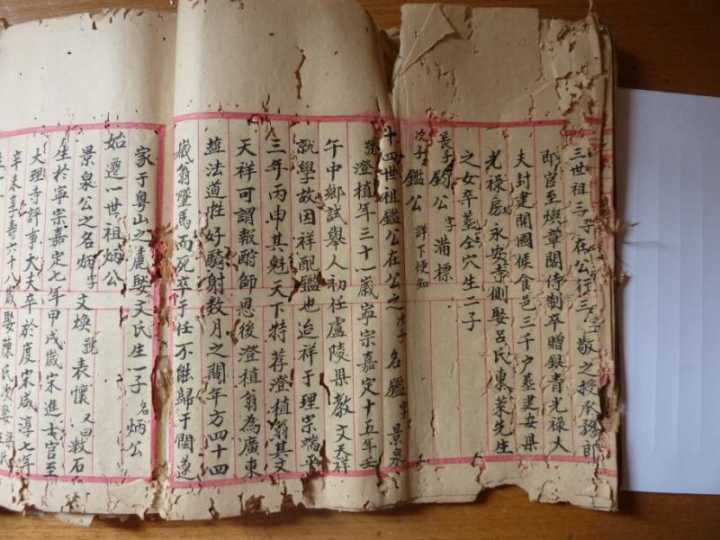 三世祖三子在公行三 字敬之授承務郎
郎官至煥章閣侍制卒贈銀青光祿大
夫封建開國候食邑三千户墓建安縣
光祿房永安寺側娶吕氏東萊先生
之女辛墓仝穴生二子
長子鈞公 字 蒲標
次子鑑公 詳下便知
十四世祖鑑公在公之次子 名鑑 字景泉
號澄植年三十一歲寧宗嘉定十五年壬
午中鄉試舉人初任廬陵縣教文天祥
就學故因祥配鑑也迨祥于理宗端平
三年丙申其魁天下特荐澄植翁其文
天祥可謂報酧師恩後澄植翁為廣東
塩法道性好騎射数月之閒年方四十四
歲翁墜馬而死卒于任不能歸于閩遵
家于粵山之麓娶文氏生一子 名炳公
始遷一世祖炳公
景泉公之名炳 字 文煥 號 表懷 又曰 敷石
生於寧宗嘉定七年甲戌歲宋進士官至
大理寺評事大夫卒於度宋咸淳七年
辛未享壽六十 歲娶陳氏次娶